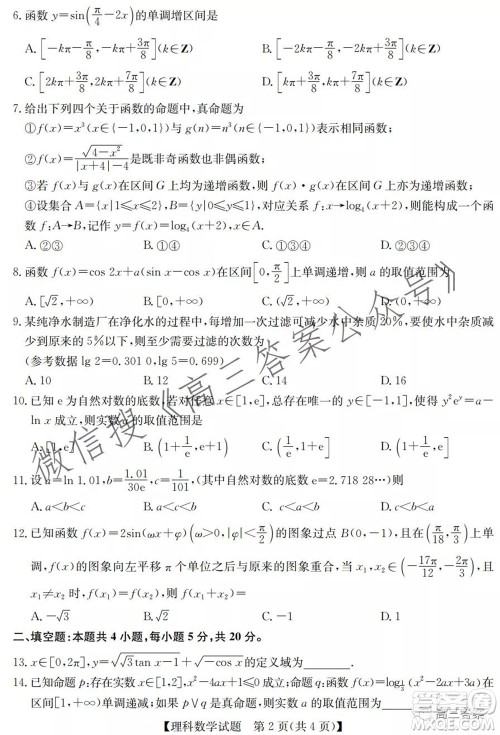 6.函数 y=sin(π/4-2x)的单调增区间是
A.[-kπ-π/8,-kπ+3π/8](k∈Z) B.[-2kπ-π/8,-2kπ+3π/8](k∈Z)
C.[kπ+3π/8,kπ+7π/8](k∈Z) D.[2kπ+3π/8,2kπ+7π/8](k∈Z)
7.给出下列四个关于函数的命题中,真命题为
①f(x)=x³(x∈{-1,0,1})与 g(n)=n³(n∈{-1,0,1})
②f(x)=√(4-x²)/(|x+4|-4)是既非奇函数也非偶函数;
③若 f(x)与 g(x)在区间 G 上均为递增函数,则 f(x)·g(x)在区间 G 上亦为递增函数;
④设集合 A={x|1≤x≤2},B={y|0≤y≤2},对应关系 f:x→log₄(x+2),则能构成一个函
数,f:A→B,记作 y=f(x)=log₄(x+2),x∈A.
A.②③ B.①④ C.①③ D.②④
8.函数 f(x)=cos 2x+a(sin x-cos x)在区间[0,π/2]上单调递增,则 a 的取值范围为
A.[√2,+∞) B.[2,+∞) D.
9.某纯净水制造厂在净化水的过程中,每增加一次过滤可减少水中杂质20%,要使水中杂质减
少到原来的5%以下,则至少需要过滤的次数为
(参考数据 lg 2=0.301 0,lg 5=0.699)
A.10 B.12 C.14 D.16
10.已知 e 为自然对数的底,若对任意的 x∈[1,e],总存在唯一的 y∈[-1,1],使得 y²eʸ=a-
ln x 成立,则实数 a 的取值范围是
A.[1,e] B.(1+1/e,e] C.(1+1/e,e+1) D.
11.设 a=ln 1.01,b=1.01/30e,c=1/101,(其中自然对数的底数 e=2.718 28…)则
A.a<b<c B.a<c<b C.c<b<a D.b<c<a
12.已知函数 f(x)=2sin(ωx+φ)(ω>0,|φ|<π/2)的图象过点 B(0,-1),且在(π/18,π/3)上单
调,f(x)的图象向左平移 π 个单位之后与原来的图象重合,当 x₁,x₂∈(-17π/12,-2π/3),且
x₁≠x₂时,f(x₁)=f(x₂),则 f(x₁+x₂)=
A.-√3 B.√3 C.-1 D.1
二、填空题:本题共 4 小题,每小题 5 分,共 20 分。
13.x∈[0,2π],y=√(√3tan x-1)+√(-cos x)的定义域为
14.已知命题 p:关于 x 的方程 x²-ax+4=0 有实根;命题 q:关于 x 的函数
在[1,+∞)上单调递减,如果 p∨q 是真命题,p∧q 是假命题,则实数 a 的取值范围是
【理科数学试题 第 2 页(共 4 页)】
微信搜《高三答案公众号》
高三答案